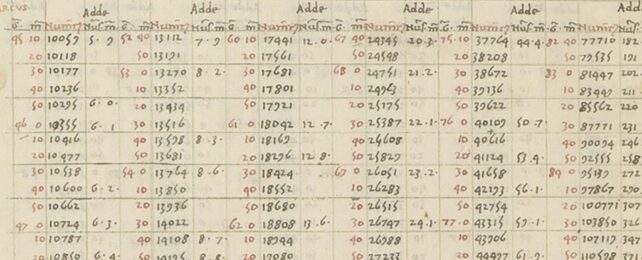 ARCVS Adde Adde Adde Adde Adde
45 10 10059 5·9 52 40 13112 7·9 60 10 17441 12·0· 67 40 24345 20·3· 75·10 37764 44·4· 82 40 77710 182
20 10118 50 13191 20 17561 50 24548 20 38208 50 79535 191
30 10177 53 0 13270 8·2· 30 17681 68 0 24751 21·2· 30 38672 83 0 81447 202
40 10236 10 13352 40 17801 10 24963 40 39136 10 83497 211
50 10295 6·0· 20 13434 50 17921 20 25175 50 39622 20 85562 220
46 0 10355 6·1 30 13516 61 0 18042 12·7· 30 25387 22·1· 76 0 40109 50·7· 30 87771 231
10 10416 40 13598 8·3· 10 18169 40 25608 10 40616 40 90094 246
20 10477 50 13681 20 18296 12·8· 50 25829 20 41124 53·4· 50 92555 258
30 10538 54 0 13764 8·6· 30 18424 69 0 26051 23·2· 30 41658 84 0 95139 272
40 10600 6·2· 10 13850 40 18552 10 26283 40 42193 56·1· 10 97867 290
50 10662 20 13936 50 18680 20 26515 50 42754 20 100771 307
47 0 10724 6·3· 30 14022 62 0 18808 13·6· 30 26747 24·1· 77·0 43315 59·1· 30 103850 326
10 10787 40 14108 8·7· 10 18944 40 26988 10 43906 40 107119 347
20 10850 6·4· 50 14195 8·8· 20 19080 50 27233 20 44497 61·9· 50 110598